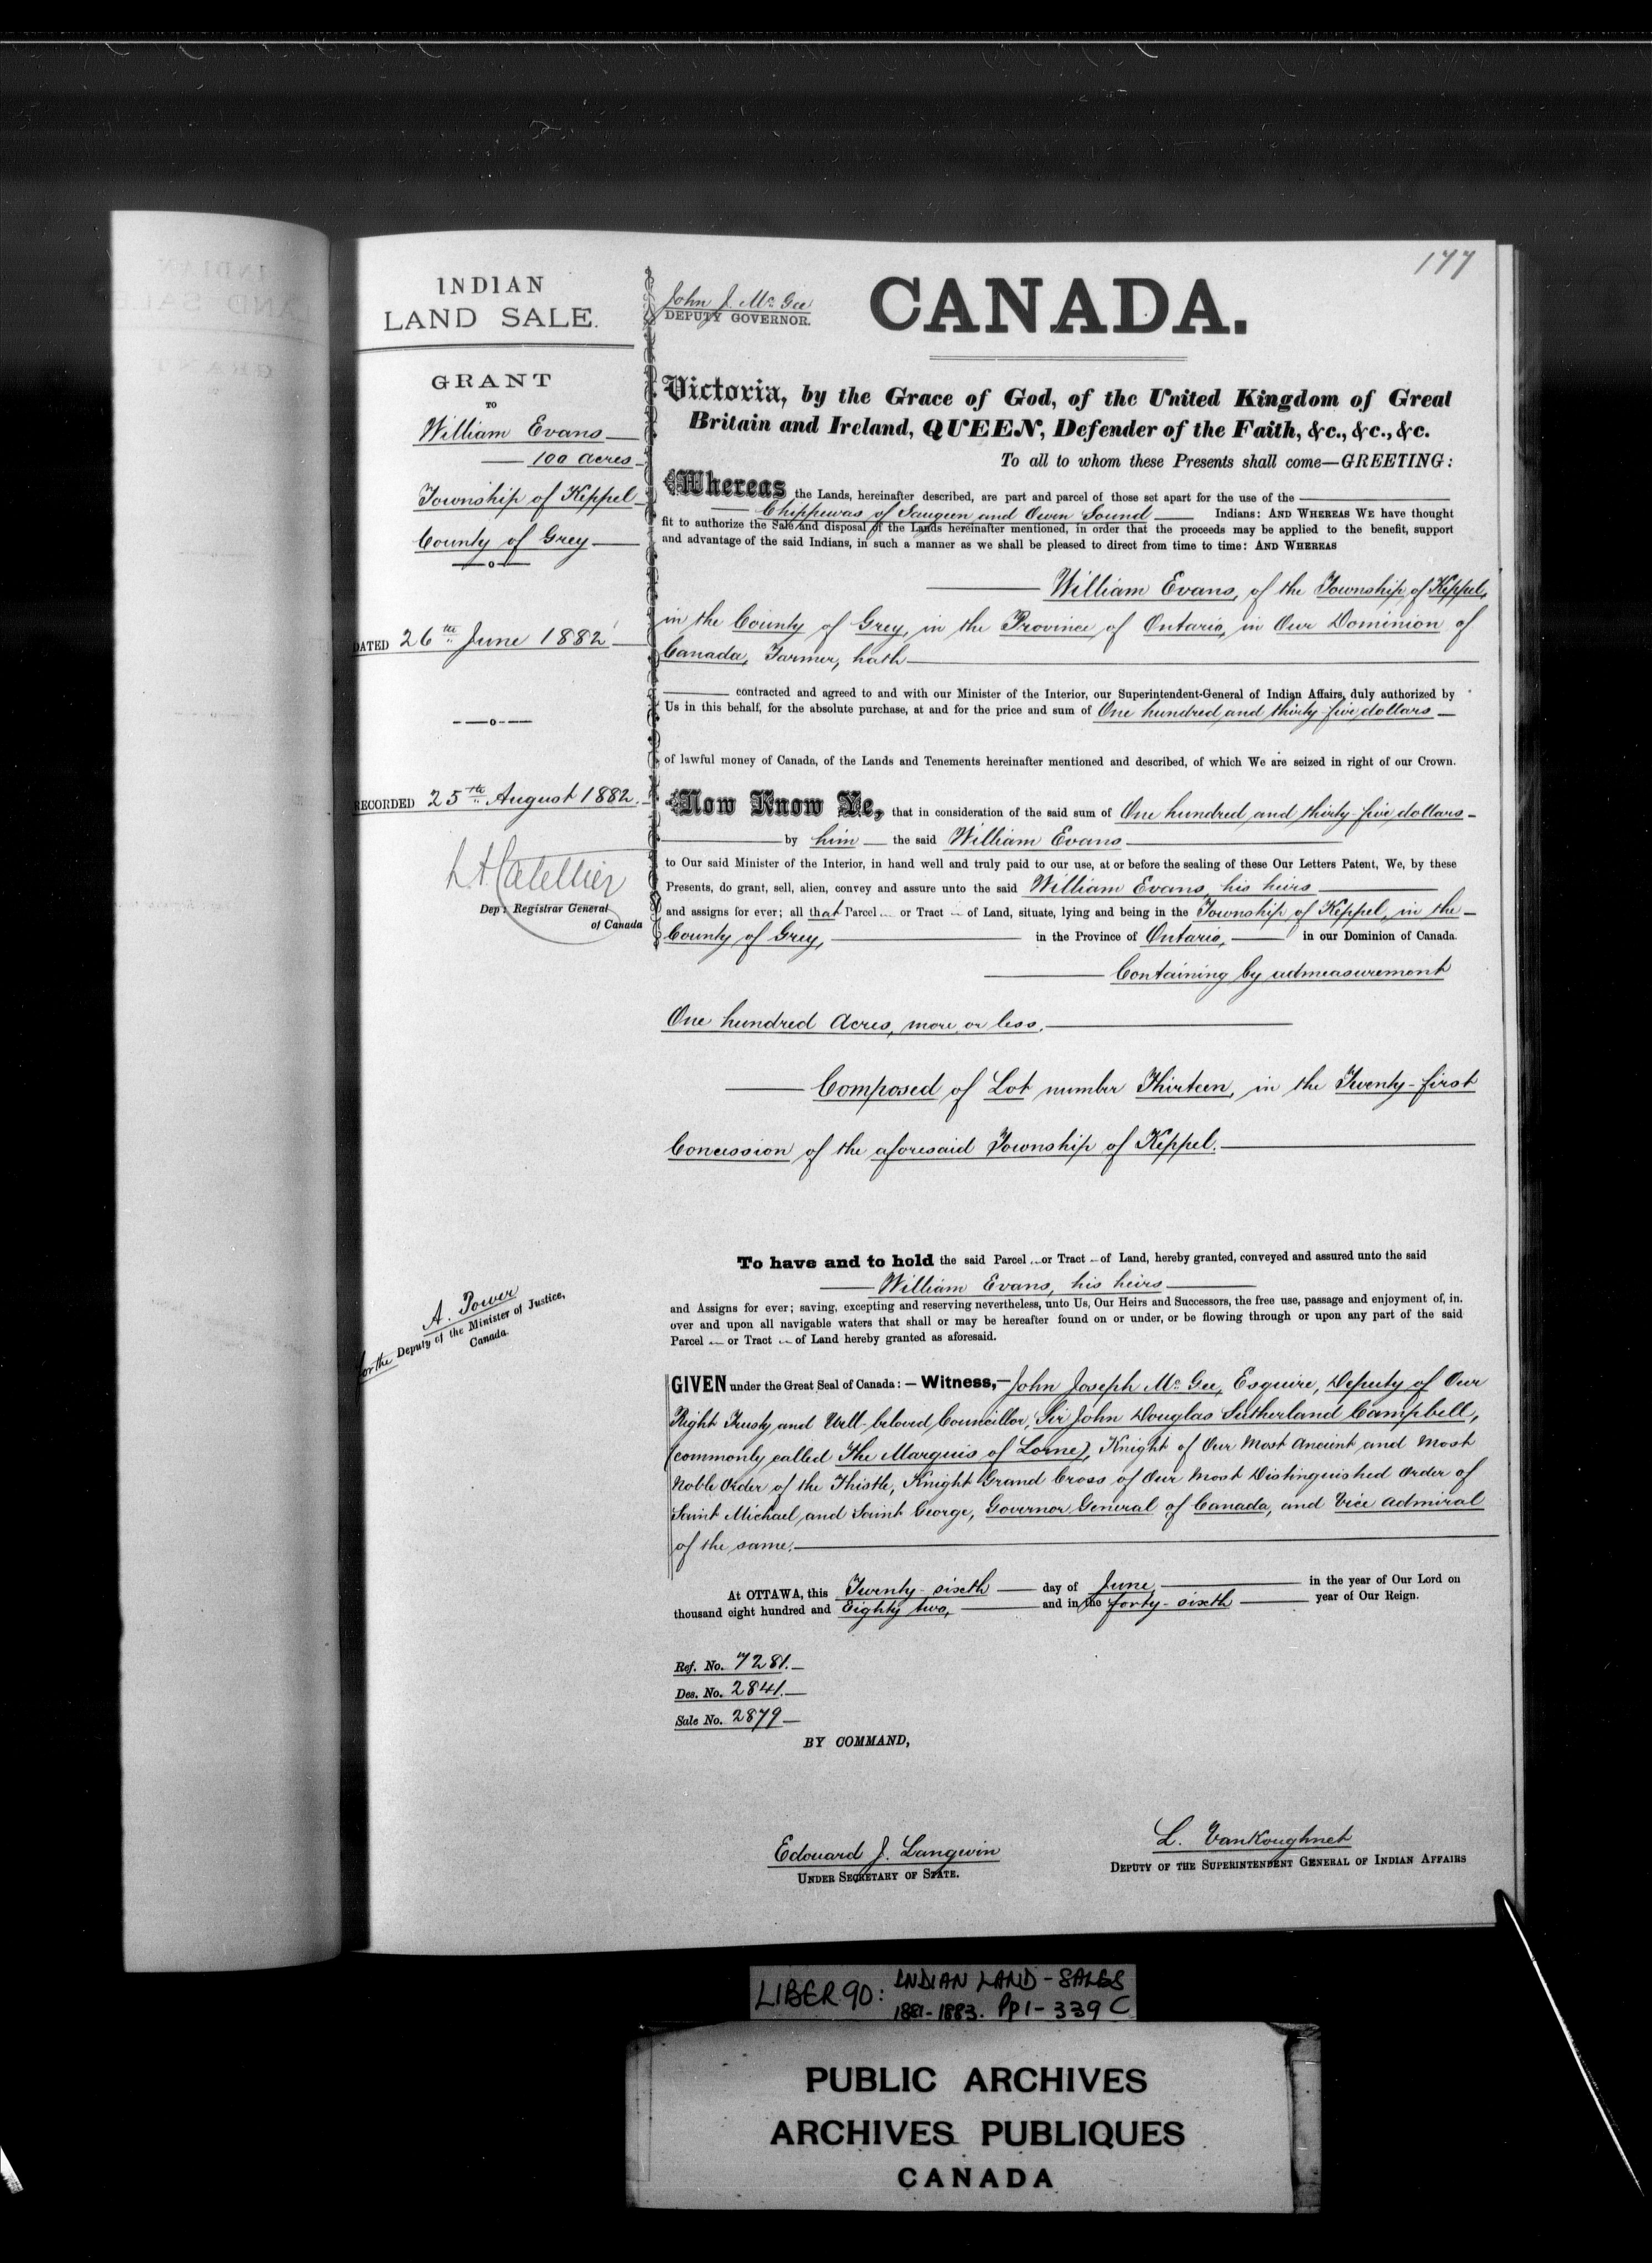 177
INDIAN
LAND SALE.
GRANT
TO
William Evans
100 acres
Township of Keppel
County of Grey
DATED 26th June 1882
RECORDED 25th August 1882.
Dep: Registrar General
of Canada
A. Power
for the Deputy of the Minister of Justice,
Canada.
John J. McGee
DEPUTY GOVERNOR.
CANADA.
Victoria, by the Grace of God, of the United Kingdom of Great
Britain and Ireland, QUEEN, Defender of the Faith, &c., &c., &c.
To all to whom these Presents shall come—GREETING:
Whereas the Lands, hereinafter described, are part and parcel of those set apart for the use of the
Chippewas of Saugeen and Owen Sound Indians: AND WHEREAS WE have thought
fit to authorize the Sale and disposal of the Lands hereinafter mentioned, in order that the proceeds may be applied to the benefit, support
and advantage of the said Indians, in such a manner as we shall be pleased to direct from time to time: AND WHEREAS
William Evans, of the Township of Keppel,
in the County of Grey, in the Province of Ontario, in Our Dominion of
Canada, Farmer, hath
contracted and agreed to and with our Minister of the Interior, our Superintendent-General of Indian Affairs, duly authorized by
Us in this behalf, for the absolute purchase, at and for the price and sum of One hundred and thirty-five dollars
of lawful money of Canada, of the Lands and Tenements hereinafter mentioned and described, of which We are seized in right of our Crown.
Now Know Ye, that in consideration of the said sum of One hundred and thirty-five dollars
by him the said William Evans
to Our said Minister of the Interior, in hand well and truly paid to our use, at or before the sealing of these Our Letters Patent, We, by these
Presents, do grant, sell, alien, convey and assure unto the said William Evans, his heirs
and assigns for ever; all that Parcel or Tract of Land, situate, lying and being in the Township of Keppel, in the
County of Grey, in the Province of Ontario, in our Dominion of Canada.
Containing by admeasurement
One hundred Acres, more or less.
Composed of Lot number Thirteen, in the Twenty-first
Concession of the aforesaid Township of Keppel.
To have and to hold the said Parcel or Tract of Land, hereby granted, conveyed and assured unto the said
William Evans, his heirs
and Assigns for ever; saving, excepting and reserving nevertheless, unto Us, Our Heirs and Successors, the free use, passage and enjoyment of, in,
over and upon all navigable waters that shall or may be hereafter found on or under, or be flowing through or upon any part of the said
Parcel or Tract of Land hereby granted as aforesaid.
GIVEN under the Great Seal of Canada:—Witness,—John Joseph McGee, Esquire, Deputy of Our
Right Trusty and Well-beloved Councillor, Sir John Douglas Sutherland Campbell,
(commonly called The Marquis of Lorne), Knight of Our Most Ancient and Most
Noble Order of the Thistle, Knight Grand Cross of Our Most Distinguished Order of
Saint Michael and Saint George, Governor General of Canada, and Vice Admiral
of the same.
At OTTAWA, this Twenty-sixth day of June, in the year of Our Lord on
thousand eight hundred and Eighty two, and in the forty-sixth year of Our Reign.
Ref. No. 7281.
Des. No. 2841.
Sale No. 2879
BY COMMAND,
Edouard J. Langevin
UNDER SECRETARY OF STATE.
L. VanKoughnet
DEPUTY OF THE SUPERINTENDENT GENERAL OF INDIAN AFFAIRS
LIBER 90: INDIAN LAND-SALES
1881-1883. Pp 1-339 C
PUBLIC ARCHIVES
ARCHIVES PUBLIQUES
CANADA